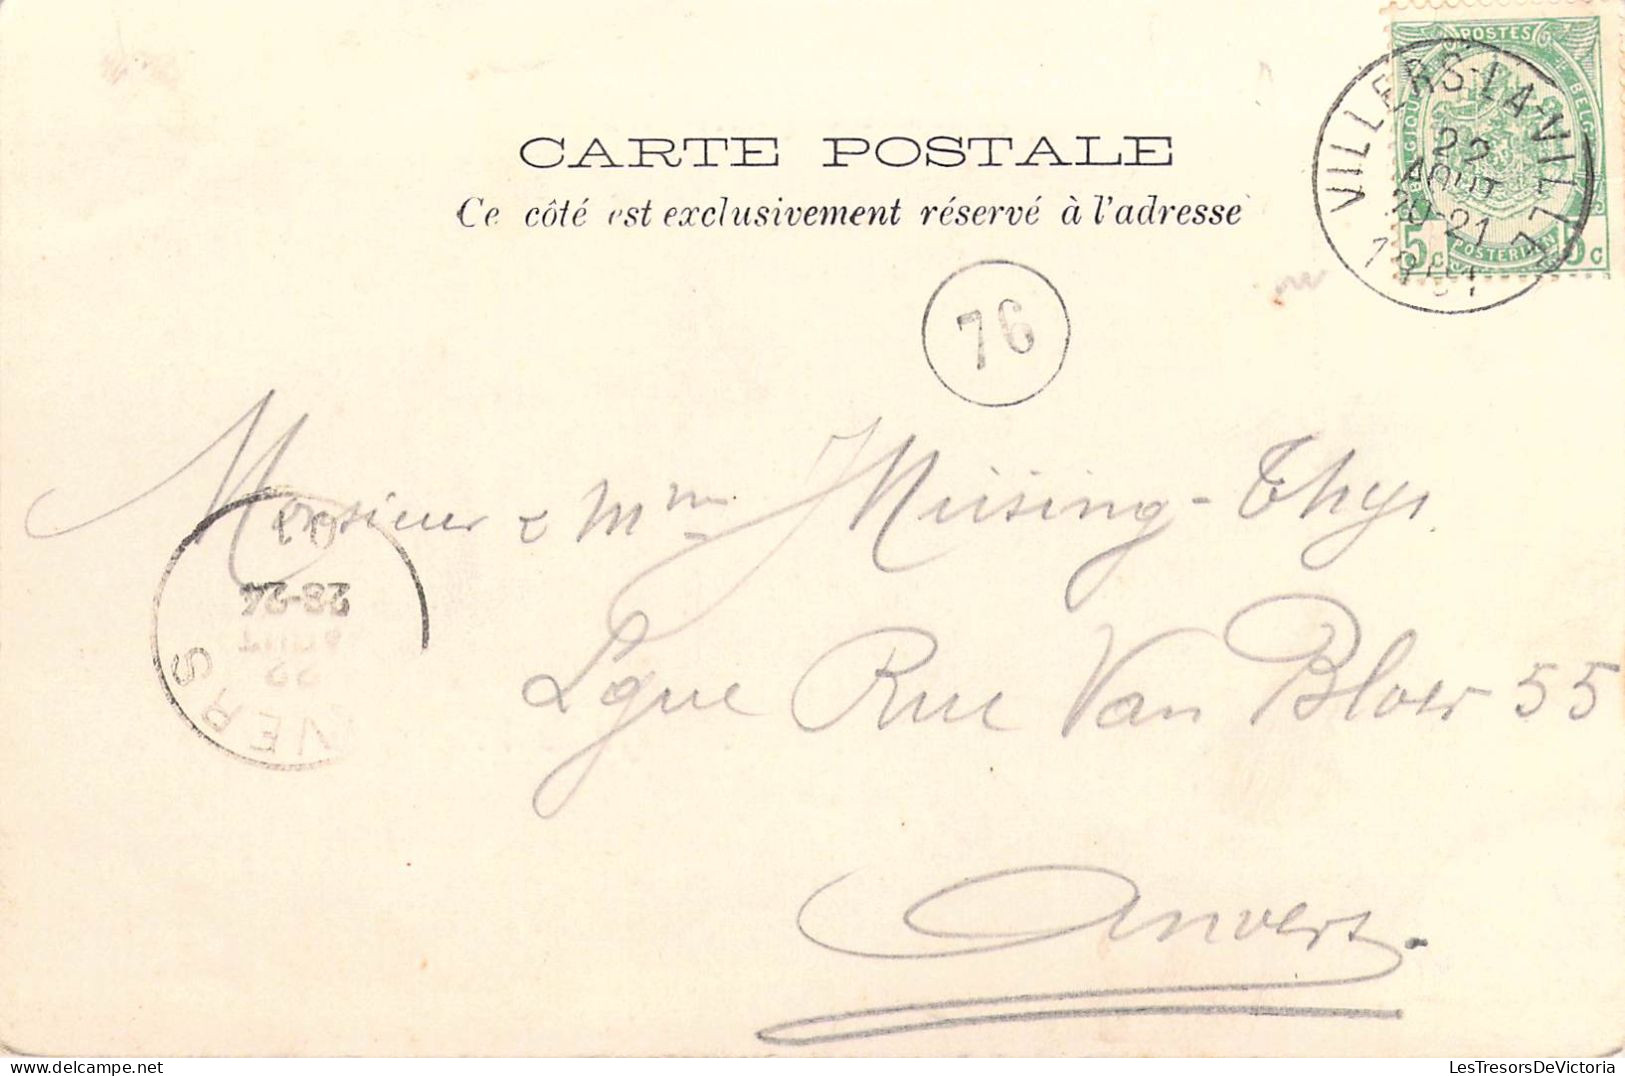 POSTES
BELGIQUE
5 c
5 c
VILLERS-LA-VILLE
22
AOUT
20-21
1901
CARTE POSTALE
Ce côté est exclusivement réservé à l'adresse
76
Monsieur & Mme J Müsing-Thys
Lgue Rue Van Bloer 55
Anvers.
01
23-24
22
VERS
LesTresorsDeVictoria